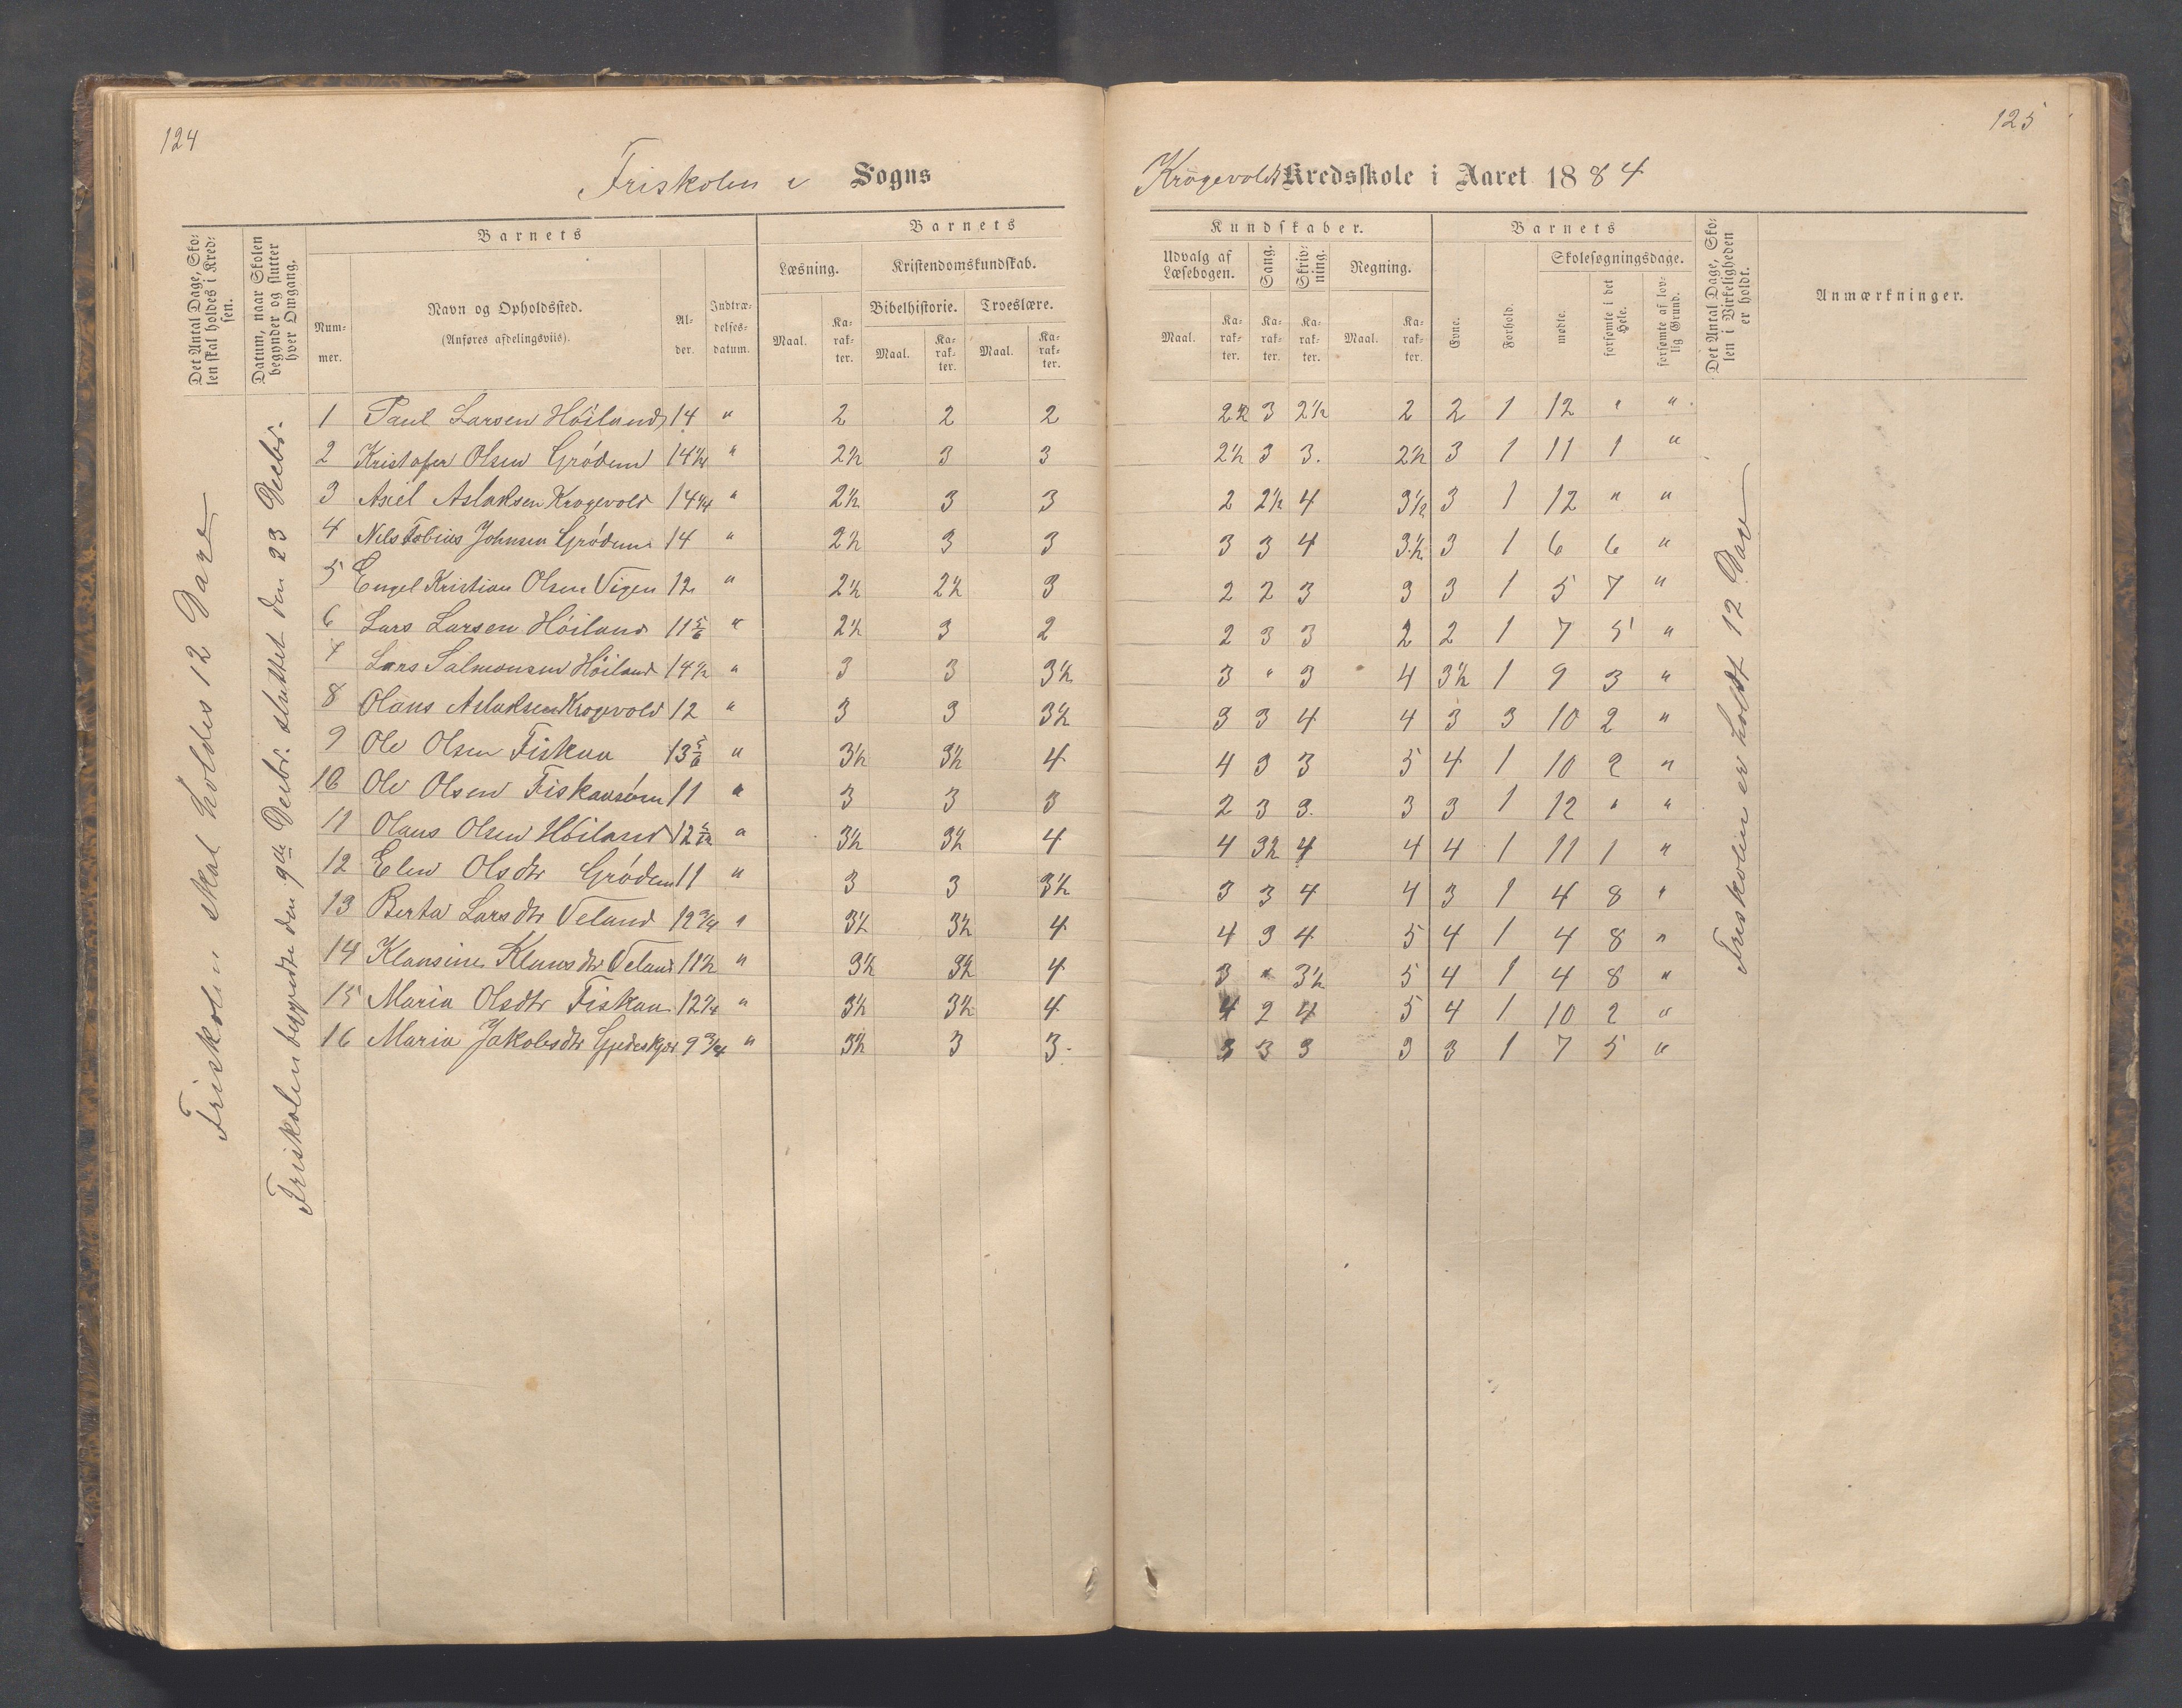 124
125
Friskolen i Sogns
Krogevolds Kredsskole i Aaret 1884
Det Antal Dage, Skolen skal holdes i Kredsen.
Datum, naar Skolen begynder og slutter hver Omgang.
Barnets
Nummer.
Navn og Opholdssted.
(Anføres afdelingsviis).
Alder.
Indtrædelsesdatum.
Barnets
Læsning.
Kristendomskundskab.
Bibelhistorie.
Troeslære.
Maal. Karakter. Maal. Karakter. Maal. Karakter.
Kundskaber.
Udvalg af Læsebogen.
Sang.
Skrivning.
Regning.
Maal. Karakter. Karakter. Karakter. Maal. Karakter.
Barnets
Evne.
Forhold.
Skolesøgningsdage.
mødte.
forsømte i det Hele.
forsømte af lovlig Grund.
Det Antal Dage, Skolen i Virkeligheden er holdt.
Anmærkninger.
Friskolen skal holdes 12 Dage
Friskolen begyndte den 9de Decbr. sluttet den 23 Decbr.
1 Paul Larsen Höiland 14 " 2 2 2 2½ 3 2½ 2 2 1 12 " "
2 Kristofer Olsen Grödem 14¼ " 2½ 3 3 2½ 3 3. 2½ 3 1 11 1 "
3 Axel Aslaksen Krogevold 14¼ " 2½ 3 3 2 2½ 4 3½ 3 1 12 " "
4 Nils Tobias Johnsen Grödem 14 " 2½ 3 3 3 3 4 3½ 3 1 6 6 "
5 Engel Kristian Olsen Vigen 12 " 2½ 2½ 3 2 2 3 3 3 1 5 7 "
6 Lars Larsen Höiland 11 5/6 " 2½ 3 2 2 3 3 2 2 1 7 5 "
7 Lars Salmonsen Höiland 14½ " 3 3 3½ 3 " 3 4 3½ 1 9 3 "
8 Olaus Aslaksen Krogevold 12 " 3 3 3½ 3 3 4 4 3 3 10 2 "
9 Ole Olsen Fiskaa 13 5/6 " 3½ 3½ 4 4 3 3 5 4 1 10 2 "
10 Ole Olsen Fiskaasöen 11 " 3 3 3 2 3 3. 3 3 1 12 " "
11 Olaus Olsen Höiland 12 5/12 " 3½ 3½ 4 4 3½ 4 4 4 1 11 1 "
12 Elen Olsdtr Grödem 11 " 3 3 3½ 3 3 4 4 3 1 4 8 "
13 Berta Larsdtr Veland 12¾ " 3½ 3½ 4 4 3 4 5 4 1 4 8 "
14 Klausine Klausdtr Veland 11½ " 3½ 3½ 4 3 " 3½ 5 4 1 4 8 "
15 Maria Olsdtr Fiskaa 12¼ " 3½ 3½ 4 4 2 4 5 4 1 10 2 "
16 Maria Jakobsdtr Gjedeskjær 9¾ " 3½ 3 3. 3 3 3 3 3 1 7 5 "
Friskolen er holdt 12 Dage